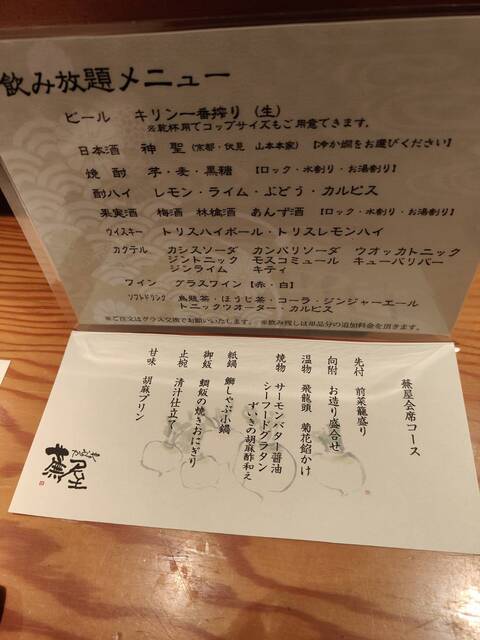 飲み放題メニュー
ビール キリン一番搾り(生)
※乾杯用でコップサイズもご用意できます。
日本酒 神聖(京都・伏見 山本本家)【冷か燗をお選びください】
焼酎 芋・麦・黒糖 【ロック・水割り・お湯割り】
酎ハイ レモン・ライム・ぶどう・カルピス
果実酒 梅酒 林檎酒 あんず酒 【ロック・水割り・お湯割り】
ウイスキー トリスハイボール・トリスレモンハイ
カクテル カシスソーダ カンパリソーダ ウオッカトニック
ジントニック モスコミュール キューバリバー
ジンライム キティ
ワイン グラスワイン【赤・白】
ソフトドリンク 烏龍茶・ほうじ茶・コーラ・ジンジャーエール
トニックウオーター・カルピス
※ご注文はグラス交換でお願いいたします。 ※飲み残しは単品分の追加料金を頂きます。
蕪屋会席コース
先付 前菜籠盛り
向附 お造り盛合せ
温物 飛龍頭 菊花餡かけ
焼物 サーモンバター醤油
シーフードグラタン
ずいきの胡麻酢和え
紙鍋 鰤しゃぶ小鍋
御飯 鯛飯の焼きおにぎり
止椀 清汁仕立て
甘味 胡麻プリン
蕪屋